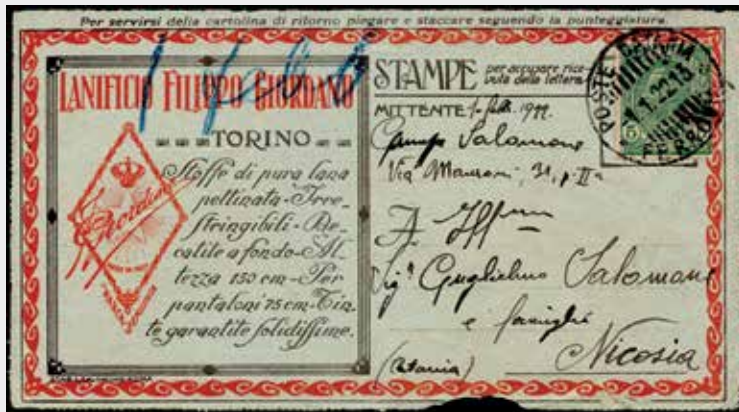 Per servirsi della cartolina di ritorno piegare e staccare seguendo la punteggiatura.
LANIFICIO FILIPPO GIORDANO
TORINO
Stoffe di pura lana
pettinata - Irre-
stringibili - De-
catite a fondo - Al-
tezza 150 cm - Per
pantaloni 75 cm - Tin-
te garantite solidissime.
Giordano
STAMPE per accusare rice-
vuta della lettera
MITTENTE 1922.
Salomone
Via Manzoni, 31, p. II
POSTE
1.1.22 13
FERRO
5
Sig. Guglielmo Salomone
e famiglia
Nicosia
(Catania)